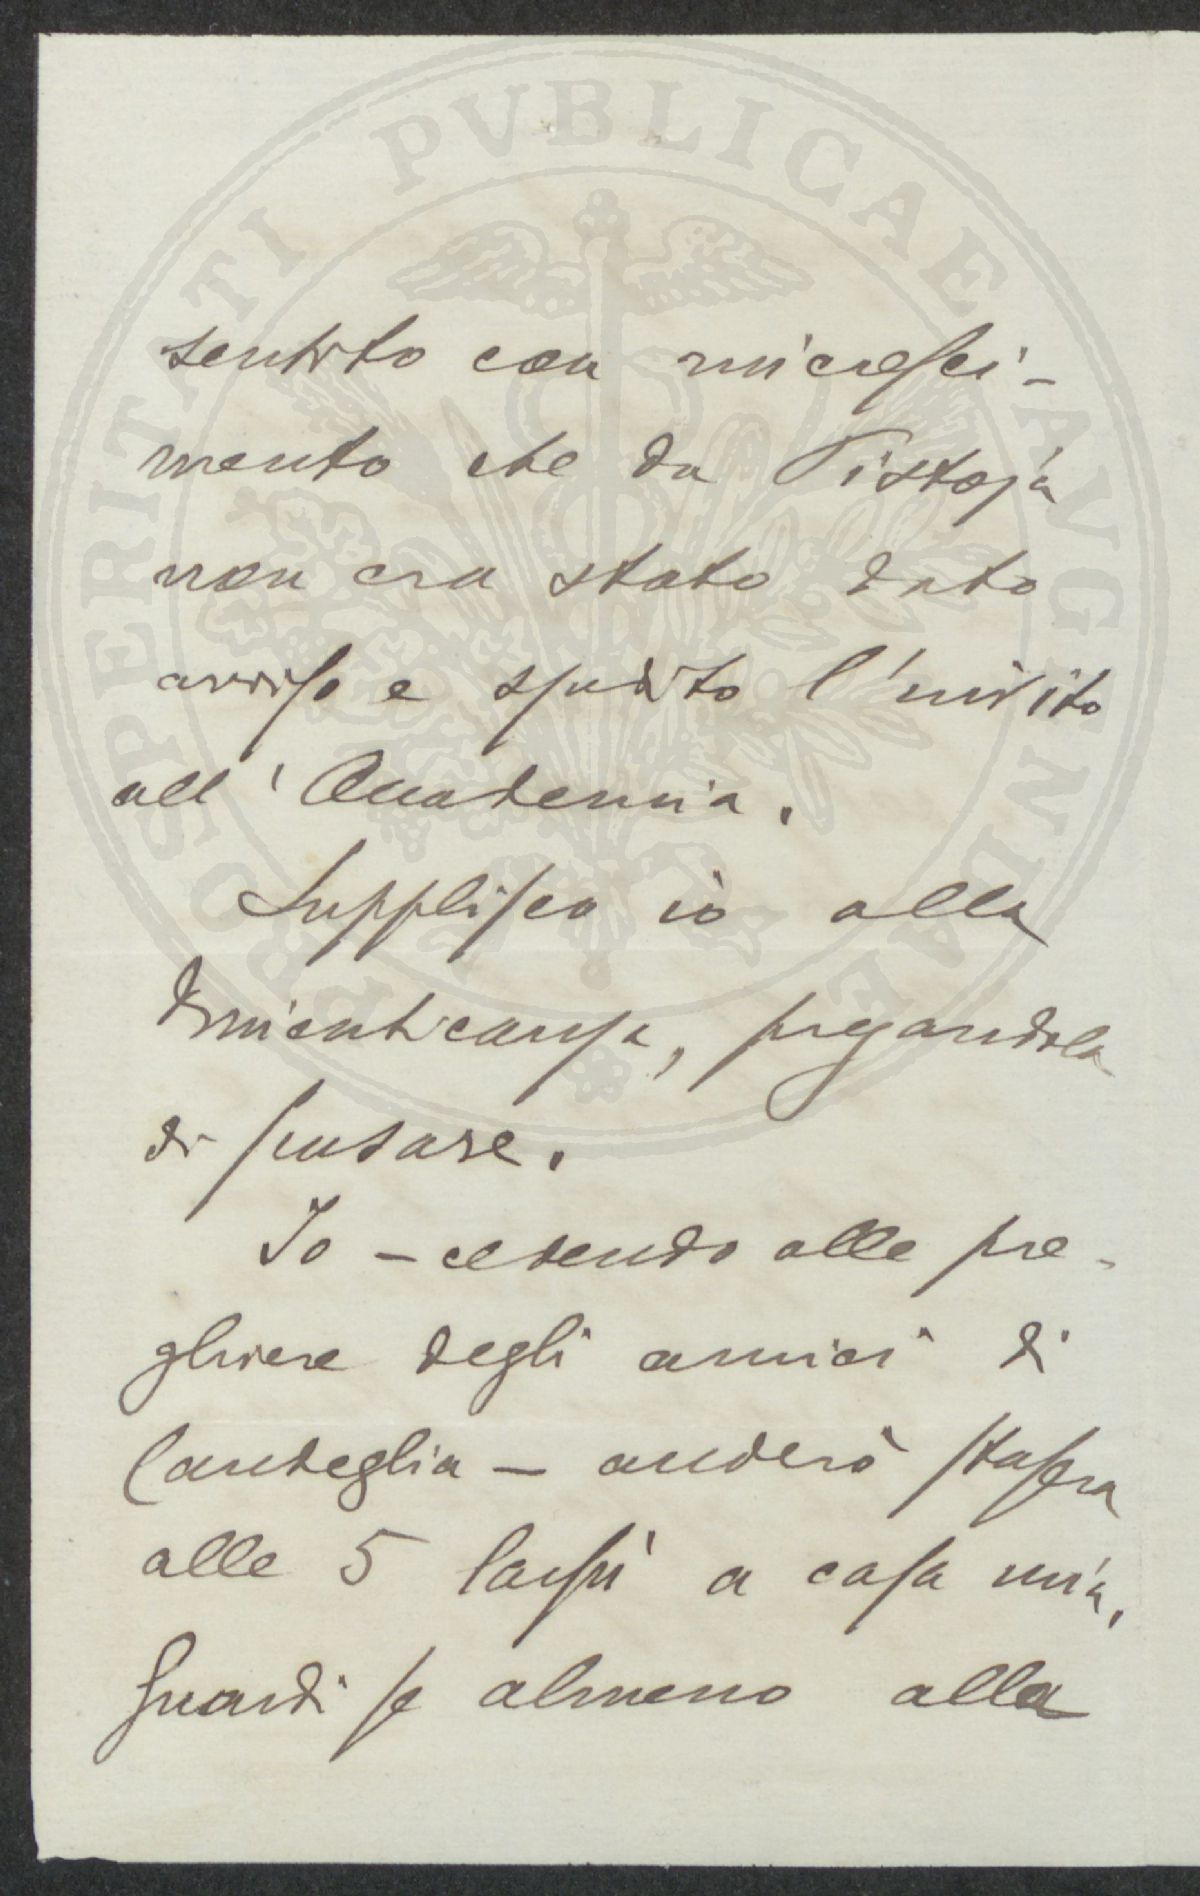 PVBLICAE AVGENDAE PROSPERITATI
sentito con rincresci-
mento che da Pistoja
non era stato dato
avviso e spedito l'invito
all'Accademia.
Supplisco io alla
dimenticanza, pregandola
di scusare.
Io – cedendo alle pre-
ghiere degli amici di
Candeglia – anderò stasera
alle 5 lassù a casa mia.
Guardi se almeno alla